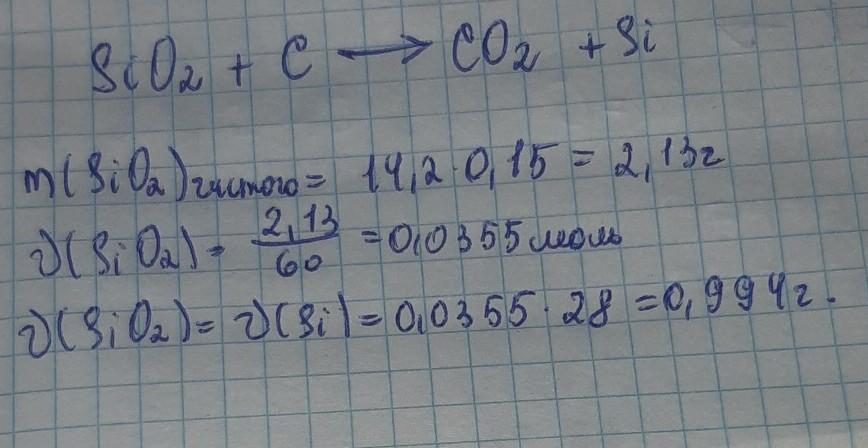 SiO₂ + C ⟶ CO₂ + Si
m(SiO₂)чистого = 14,2·0,15 = 2,13г
ν(SiO₂) = 2,13/60 = 0,0355 моль
ν(SiO₂) = ν(Si) = 0,0355·28 = 0,994г.